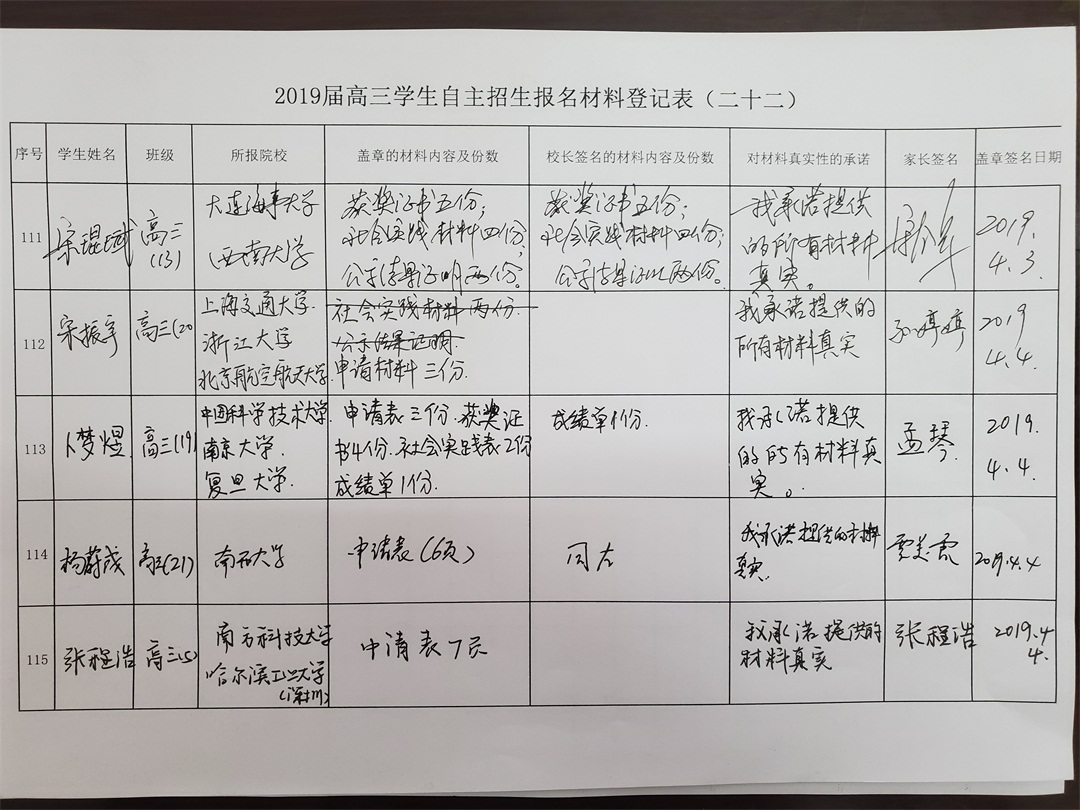 2019届高三学生自主招生报名材料登记表（二十二）
序号 学生姓名 班级 所报院校 盖章的材料内容及份数 校长签名的材料内容及份数 对材料真实性的承诺 家长签名 盖章签名日期
111 宋琨 高三(13) 大连海事大学 西南大学 获奖证书五份；社会实践材料四份；公示结果证明两份。 获奖证书五份；社会实践材料四份；公示结果证明两份。 我承诺提供的所有材料真实。 2019.4.3.
112 宋振宇 高三(20 上海交通大学. 浙江大学 北京航空航天大学. 社会实践材料两份. 公示结果证明. 申请材料三份. 我承诺提供的所有材料真实 孙婷婷 2019 4.4.
113 卜梦煜. 高三(19) 中国科学技术大学. 南京大学. 复旦大学. 申请表三份.获奖证书4份.社会实践表2份 成绩单1份. 成绩单1份. 我承诺提供的所有材料真实。 孟琴. 2019. 4.4.
114 杨蔚成 高三(21) 南开大学 申请表(6页) 同左 我承诺提供的材料真实. 贾美霞 2019.4.4
115 张程浩 高三(5) 南方科技大学 哈尔滨工业大学(深圳) 申请表7页 我承诺提供的材料真实 张程浩 2019.4.4.